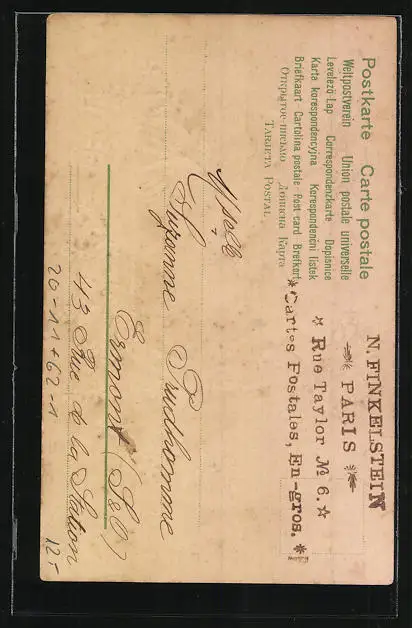 Postkarte Carte postale
Weltpostverein Union postale universelle
Levelező-Lap Correspondenzkarte Dopisnice
Karta korespondencyjna Korespondenční lístek
Briefkaart Cartolina postale Post card Brefkort
Открытое письмо Дописна Карта
TARJETA POSTAL
N. FINKELSTEIN
PARIS
☆ Rue Taylor № 6. ☆
*Cartes Postales, En-gros. *
Mlle
Suzanne Prudhomme
Ermont (S&O)
43 Rue de la Station
20-11+62-1
12-